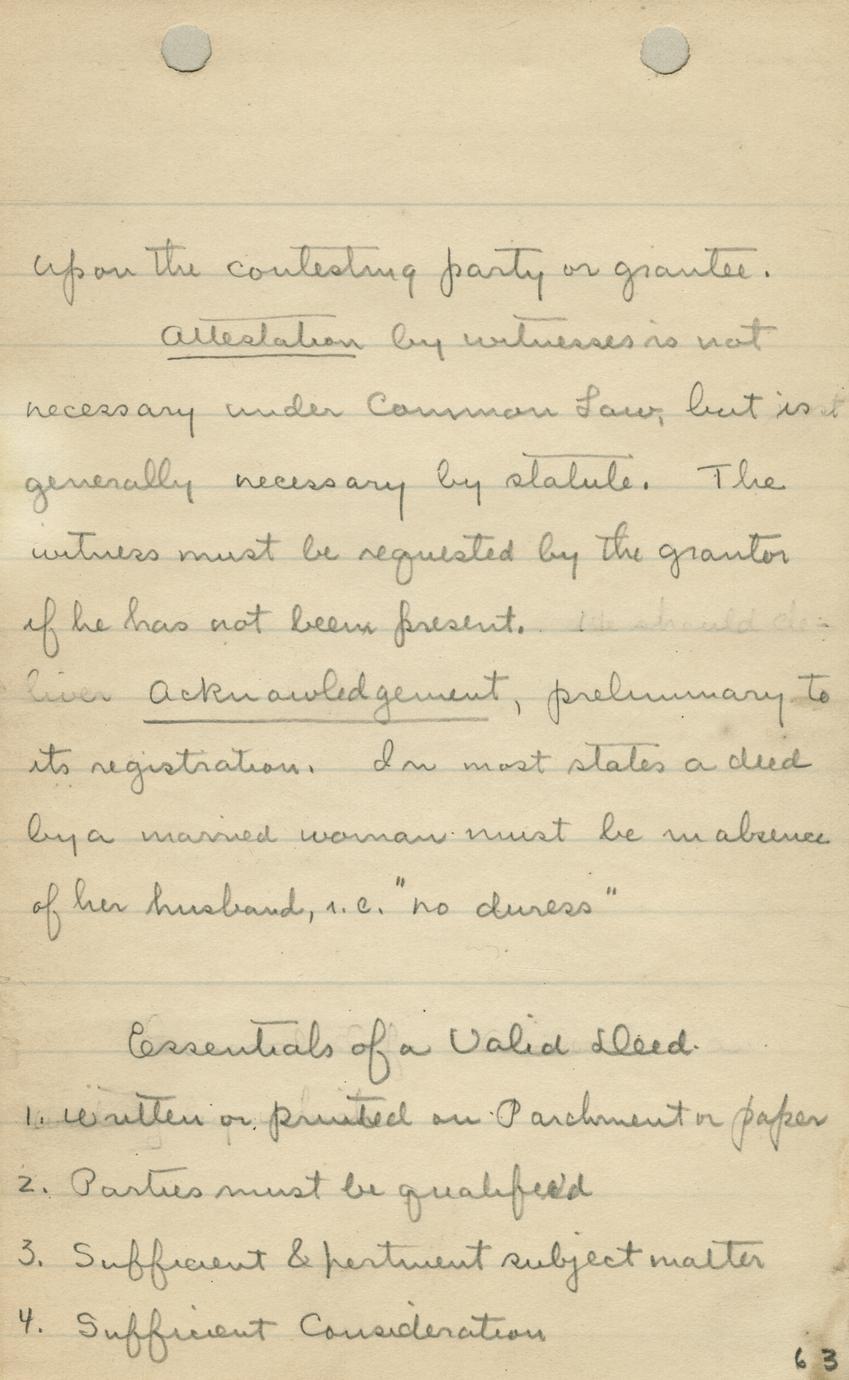 upon the contesting party or grantee.
Attestation by witnesses is not
necessary under Common Law, but is
generally necessary by statute. The
witness must be requested by the grantor
if he has not been present. He should de-
liver Acknowledgement, preliminary to
its registration. In most states a deed
by a married woman must be in absence
of her husband, i.e. "no duress"
Essentials of a Valid Deed.
1. Written or printed on Parchment or paper
2. Parties must be qualified
3. Sufficient & pertinent subject matter
4. Sufficient Consideration
63